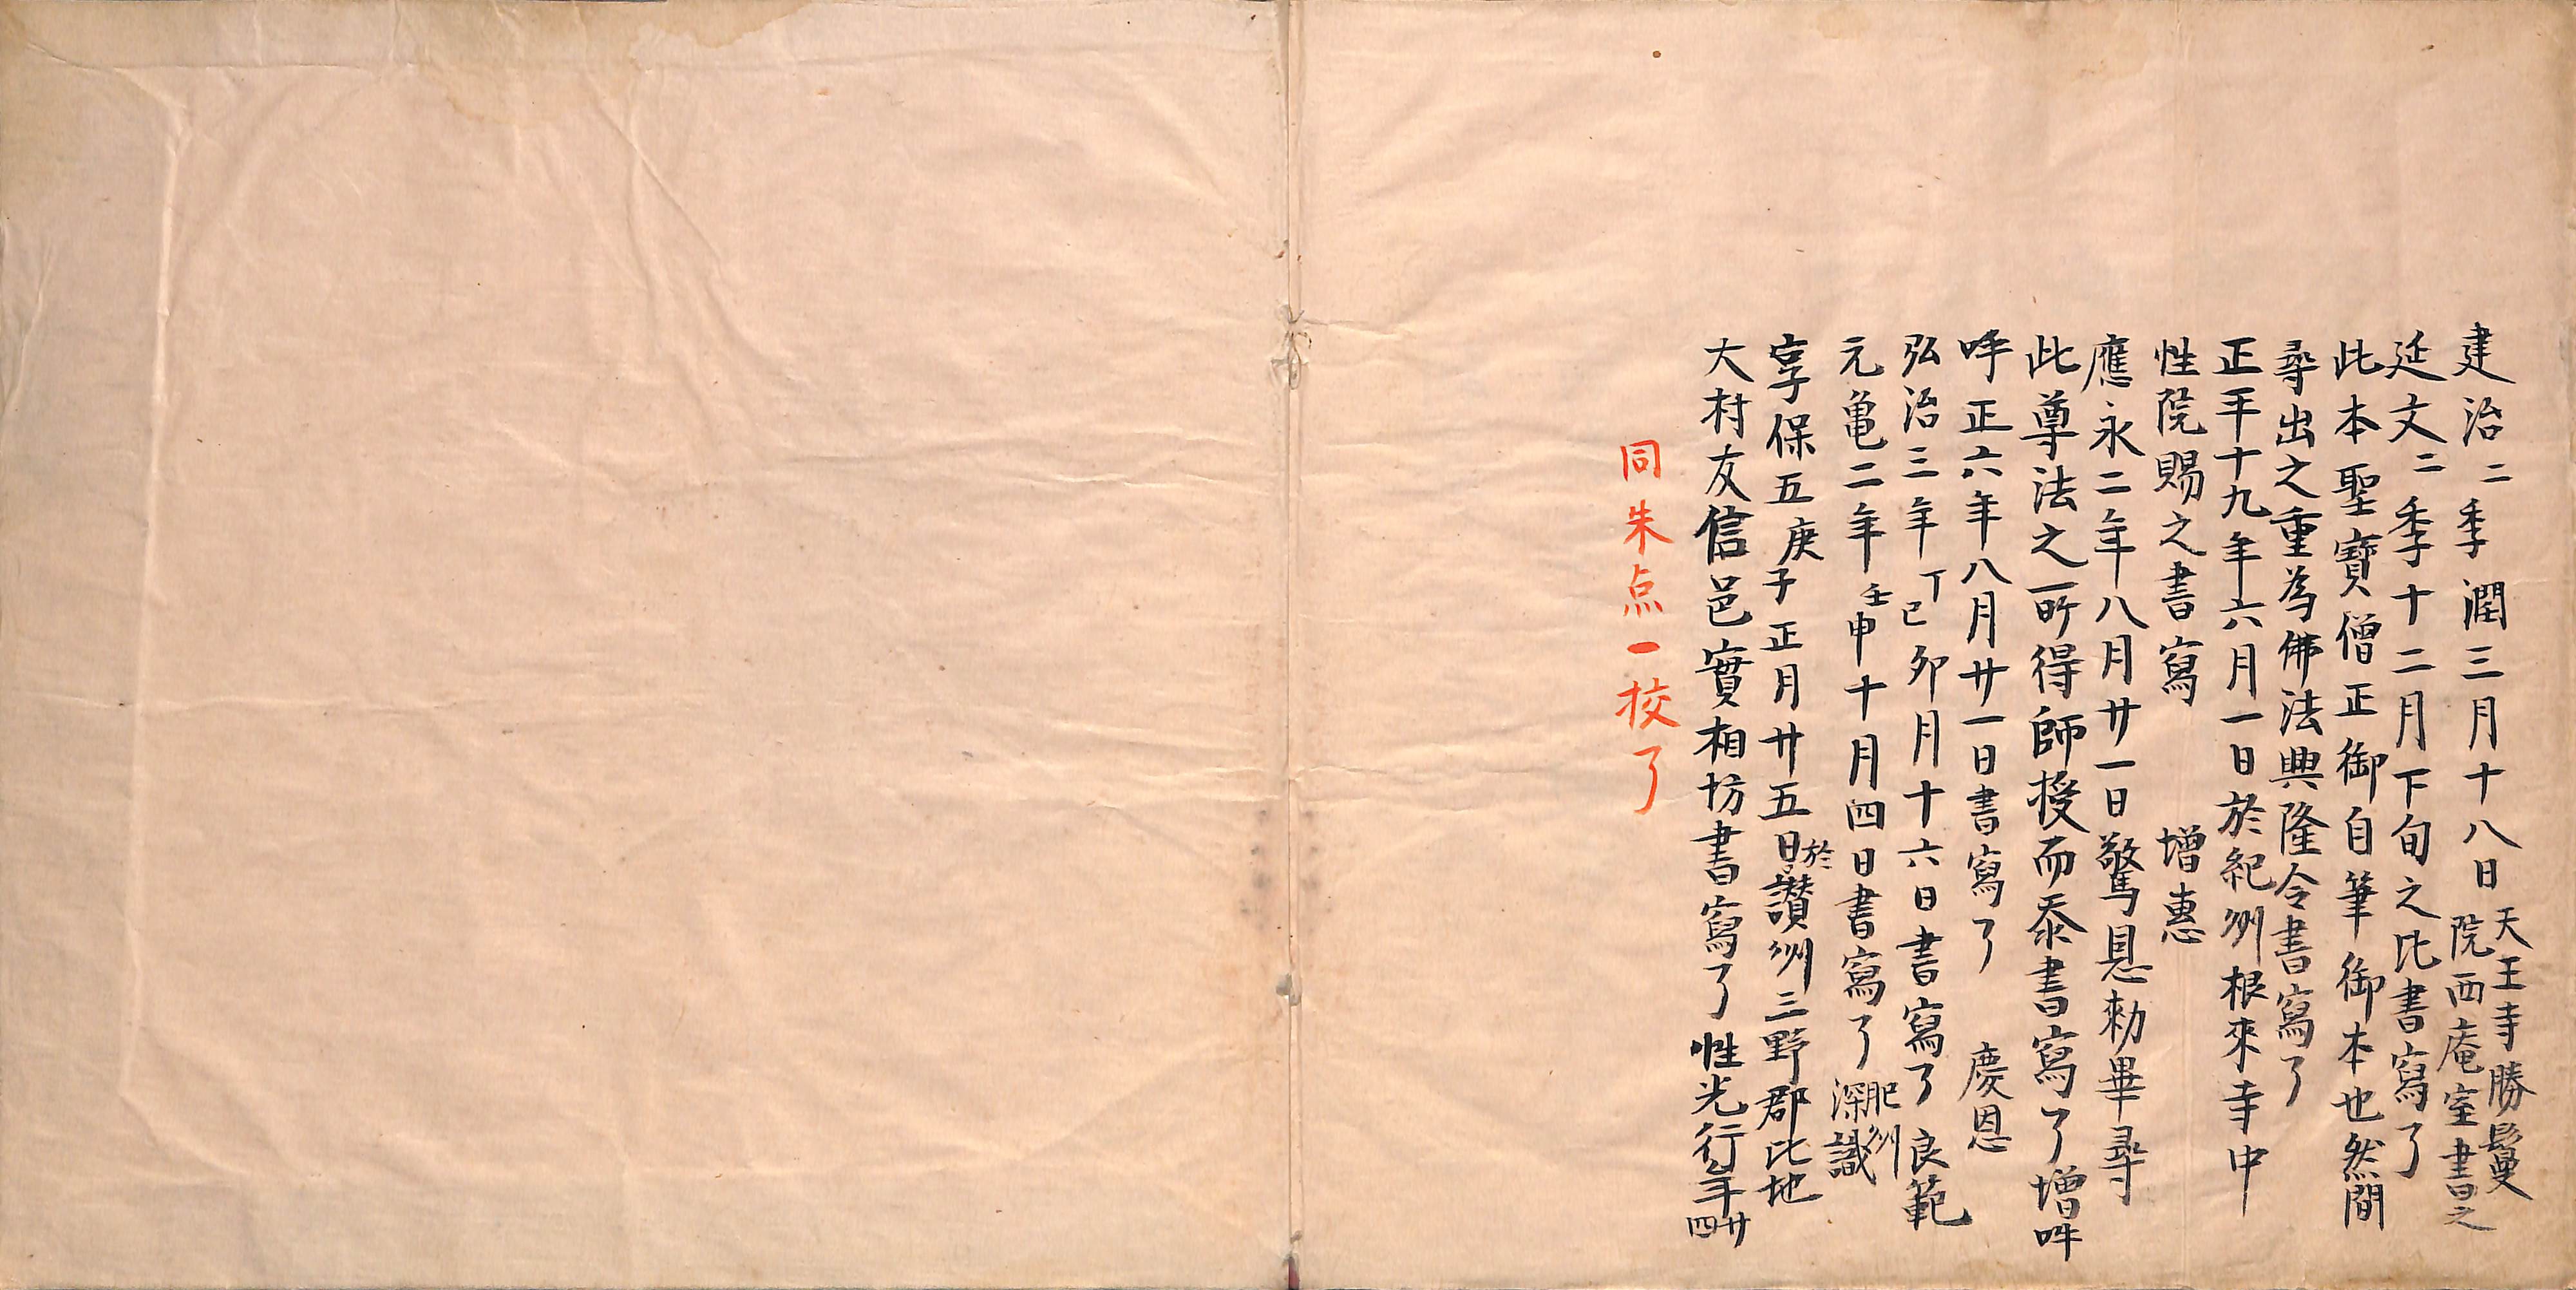 建治二季潤三月十八日天王寺勝鬘
院西庵室書之
延文二季十二月下旬之比書寫了
此本聖寶僧正御自筆御本也然間
尋出之重為佛法興隆令書寫了
正平十九年六月一日於紀州根來寺中
性院賜之書寫 增惠
應永二年八月廿一日驚見勅畢尋
此尊法之所得師授而忝書寫了增吽
吽正六年八月廿一日書寫了 慶恩
弘治三年丁巳卯月十六日書寫了良範
元亀二年壬申十月四日書寫了肥州
深識
享保五庚子正月廿五日於讃州三野郡比地
大村友信邑實相坊書寫了性光行年廿四
同朱点一挍了